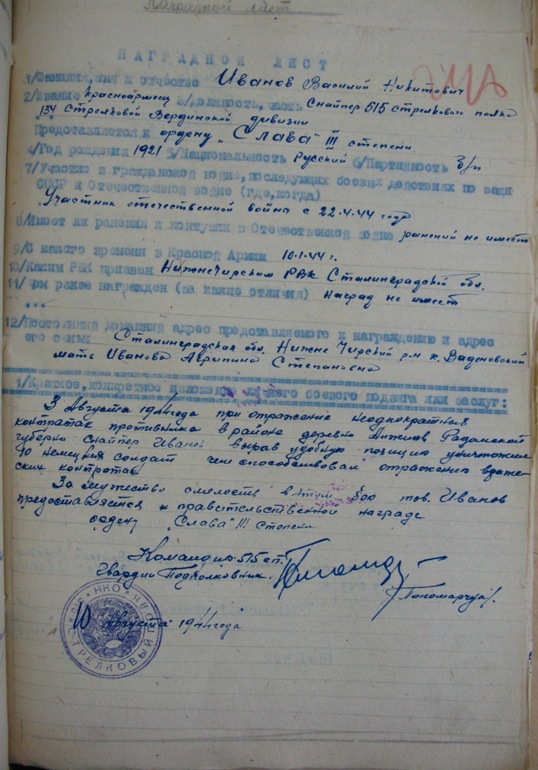 Наградной лист
НАГРАДНОЙ ЛИСТ
1/Фамилия, имя и отчество Иванов Василий Никитович
2/Звание Красноармеец 3/должность, часть Снайпер 515 стрелкового полка
134 Стрелковой Вердинской дивизии
Представляется к ордену "Слава" III степени
4/Год рождения 1921 5/Национальность Русский 6/Партийность б/п
7/Участие в гражданской войне, последующих боевых действиях по защи
СССР и Отечественной войне (где, когда)
Участник отечественной войны с 22.4.44 года
8/Имеет ли ранения и контузии в Отечественной войне ранений не имеет
9/С какого времени в Красной Армии 10.1.44 г.
10/Каким РВК призван Нижнечирским РВК Сталинградской обл.
11/Чем ранее награжден (за какие отличия) наград не имеет
...
12/Постоянный домашний адрес представляемого к награждению и адрес
его семьи Сталинградская обл. Нижне Чирский р-н х.
мать Иванова Агрипина Степановна
1/Краткое, конкретное изложение личного боевого подвига или заслуг:
3 Августа 1944 года при отражение неоднократных
контратак противника в районе деревни Радомской
губерни снайпер Иванов выбрав удобную позицию уничтожил
10 немецких солдат чем способствовал отражению враже-
ских контратак
За мужество смелость в этом бою тов. Иванов
предоставляется к правительственной награде
ордену "Слава" III степени
Командир 515 сп.
Гвардии Подполковник.
/Пономарчук/.
10 Августа 1944 года
НКО СТРЕЛКОВЫЙ